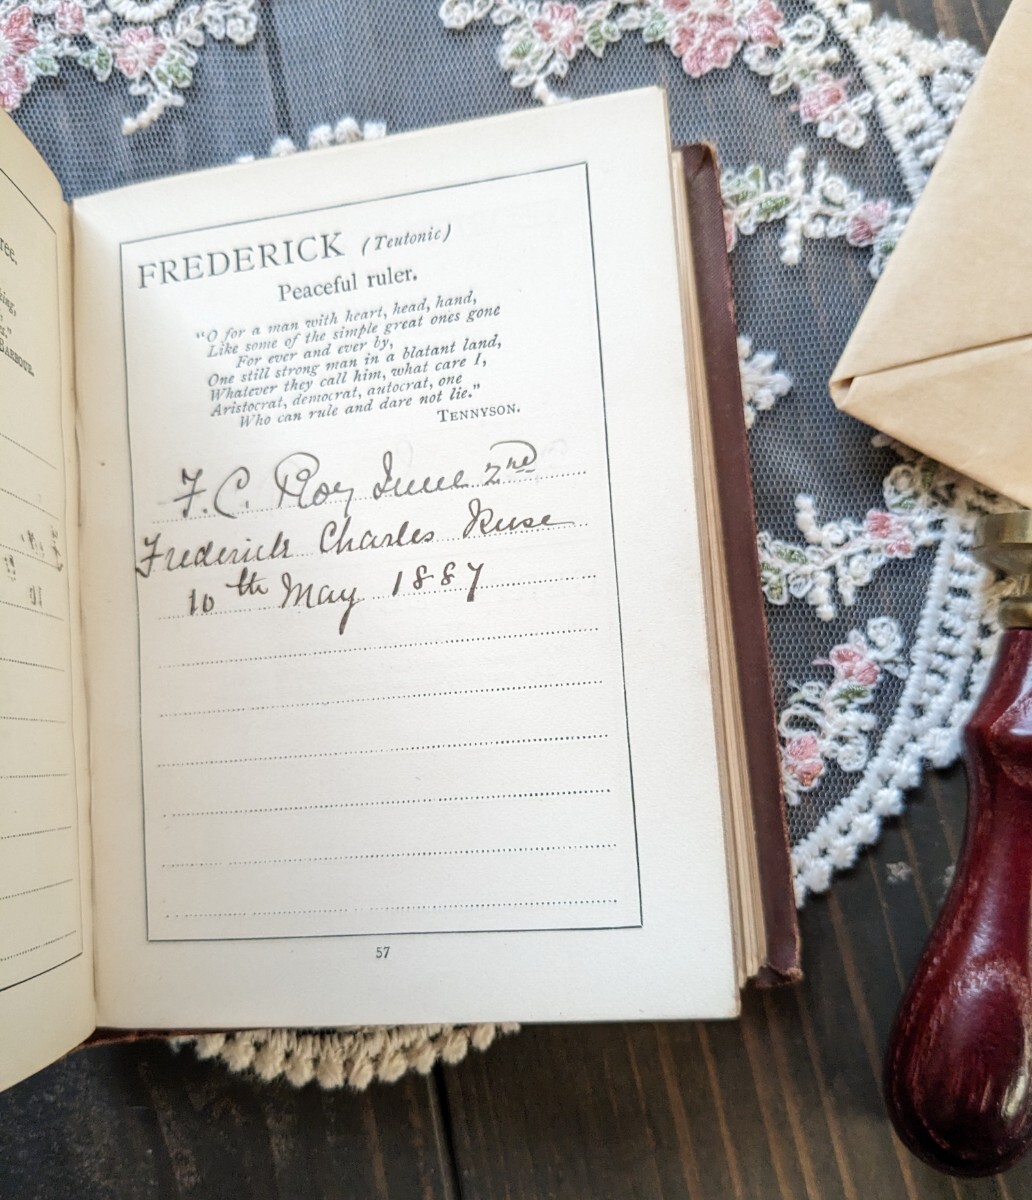 FREDERICK (Teutonic)
Peaceful ruler.
"O for a man with heart, head, hand,
Like some of the simple great ones gone
For ever and ever by,
One still strong man in a blatant land,
Whatever they call him, what care I,
Aristocrat, democrat, autocrat, one
Who can rule and dare not lie."
TENNYSON.
F. C. Roy June 2nd
Frederick Charles
10th May 1887
57